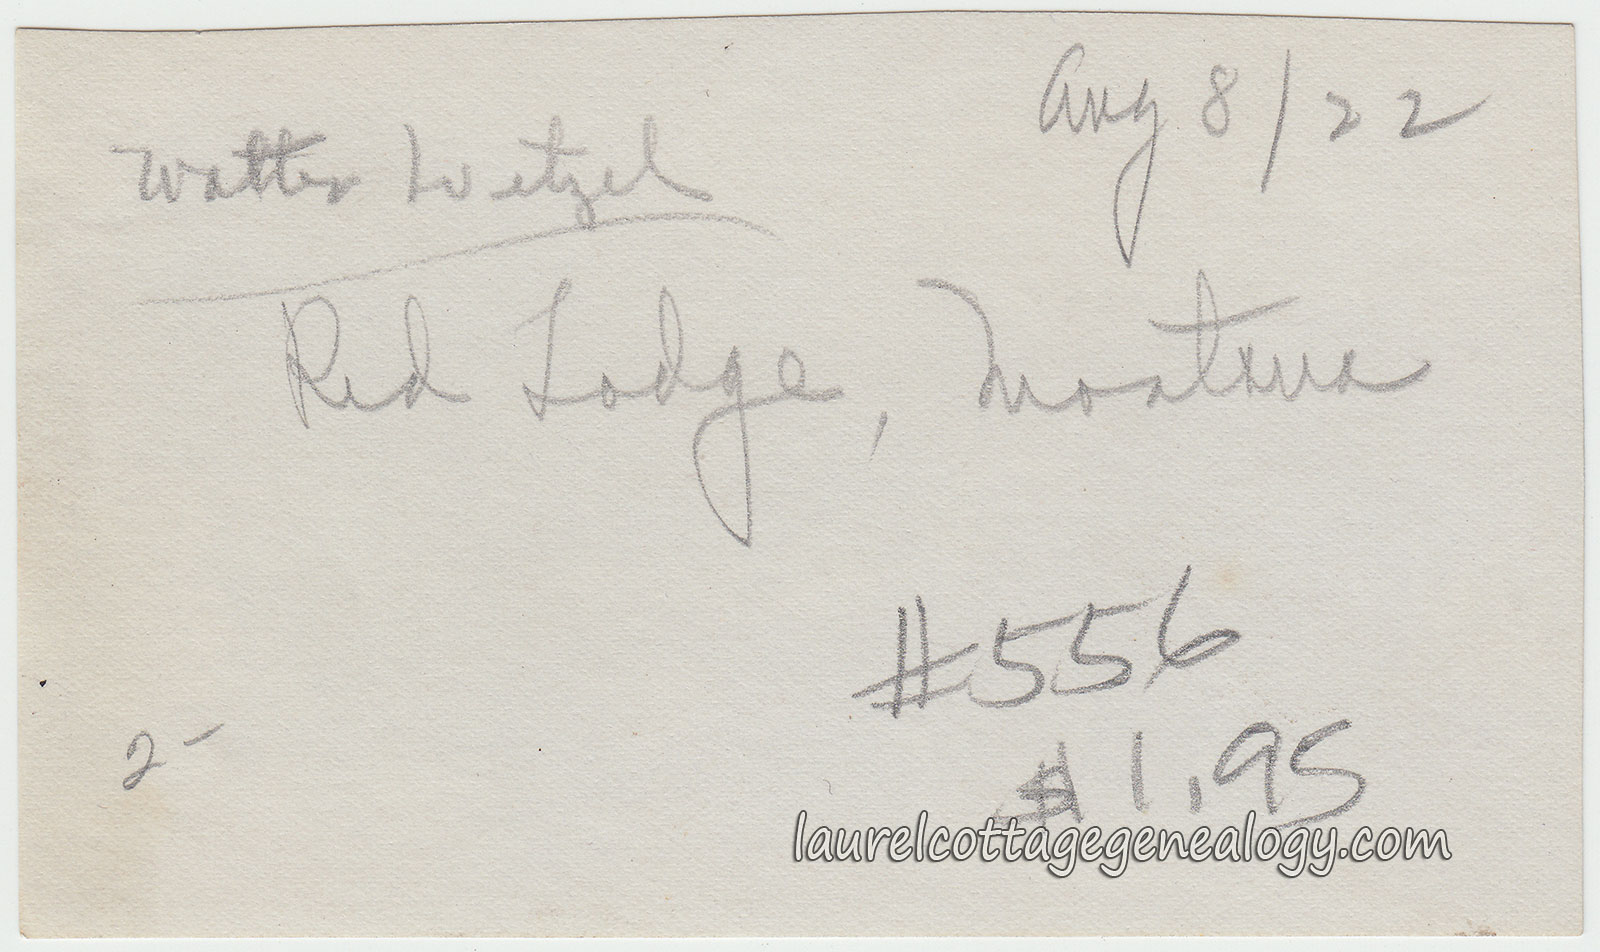 Aug 8/22
Walter Wetzel
Red Lodge, Montana
#556
2-
$1.95
laurelcottagegenealogy.com